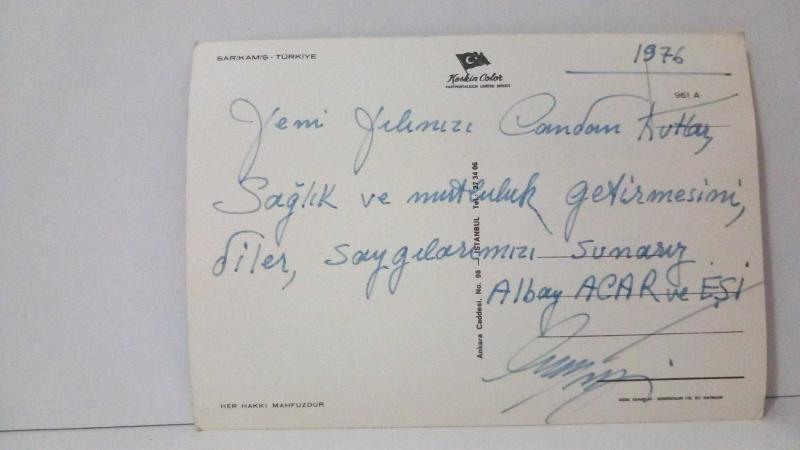 SARIKAMIŞ - TÜRKİYE
Keskin Color
1976
961 A
Yeni Yılınızı Candan Kutlar,
Sağlık ve mutluluk getirmesini,
diler, saygılarımızı sunarız
Albay ACAR ve EŞİ
Ankara Caddesi, No. 98 — İSTANBUL Tel. 27 34 06
HER HAKKI MAHFUZDUR